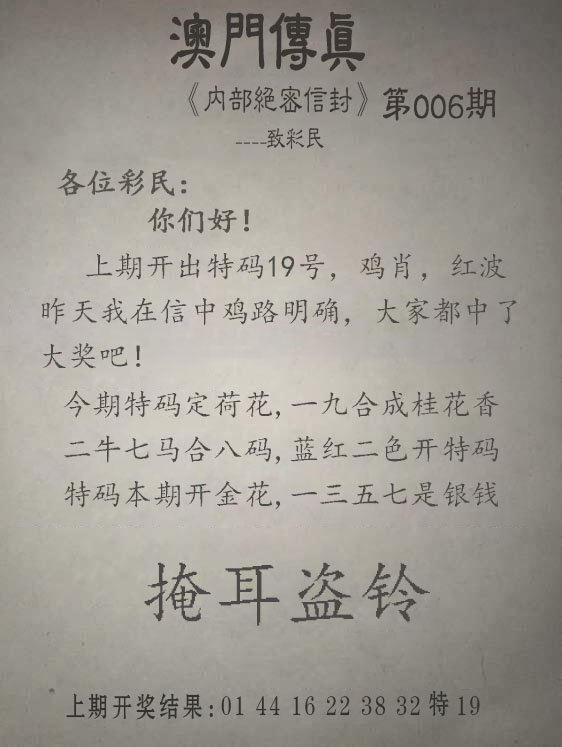 澳門傳眞
《内部絕密信封》第006期
----致彩民
各位彩民：
你们好！
上期开出特码19号，鸡肖，红波
昨天我在信中鸡路明确，大家都中了
大奖吧！
今期特码定荷花,一九合成桂花香
二牛七马合八码,蓝红二色开特码
特码本期开金花,一三五七是银钱
掩耳盗铃
上期开奖结果:01 44 16 22 38 32 特 19